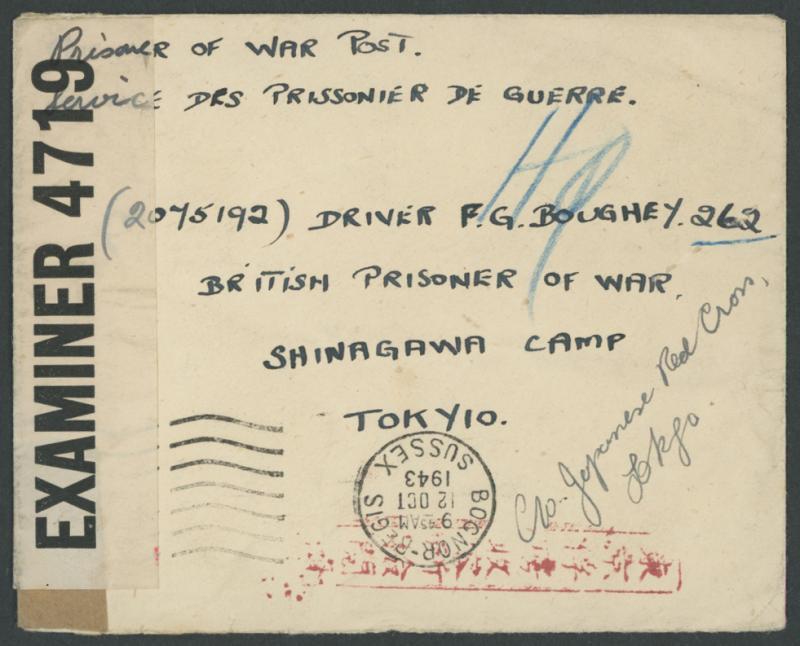 Prisoner OF WAR POST.
Service DES PRISSONIER DE GUERRE.
EXAMINER 4719
(2075192) DRIVER F.G. BOUGHEY. 262
BRITISH PRISONER OF WAR,
SHINAGAWA CAMP
TOKYIO.
C/o. Japanese Red Cross,
Tokyo
BOGNOR-REGIS
9 45AM
12 OCT
1943
SUSSEX